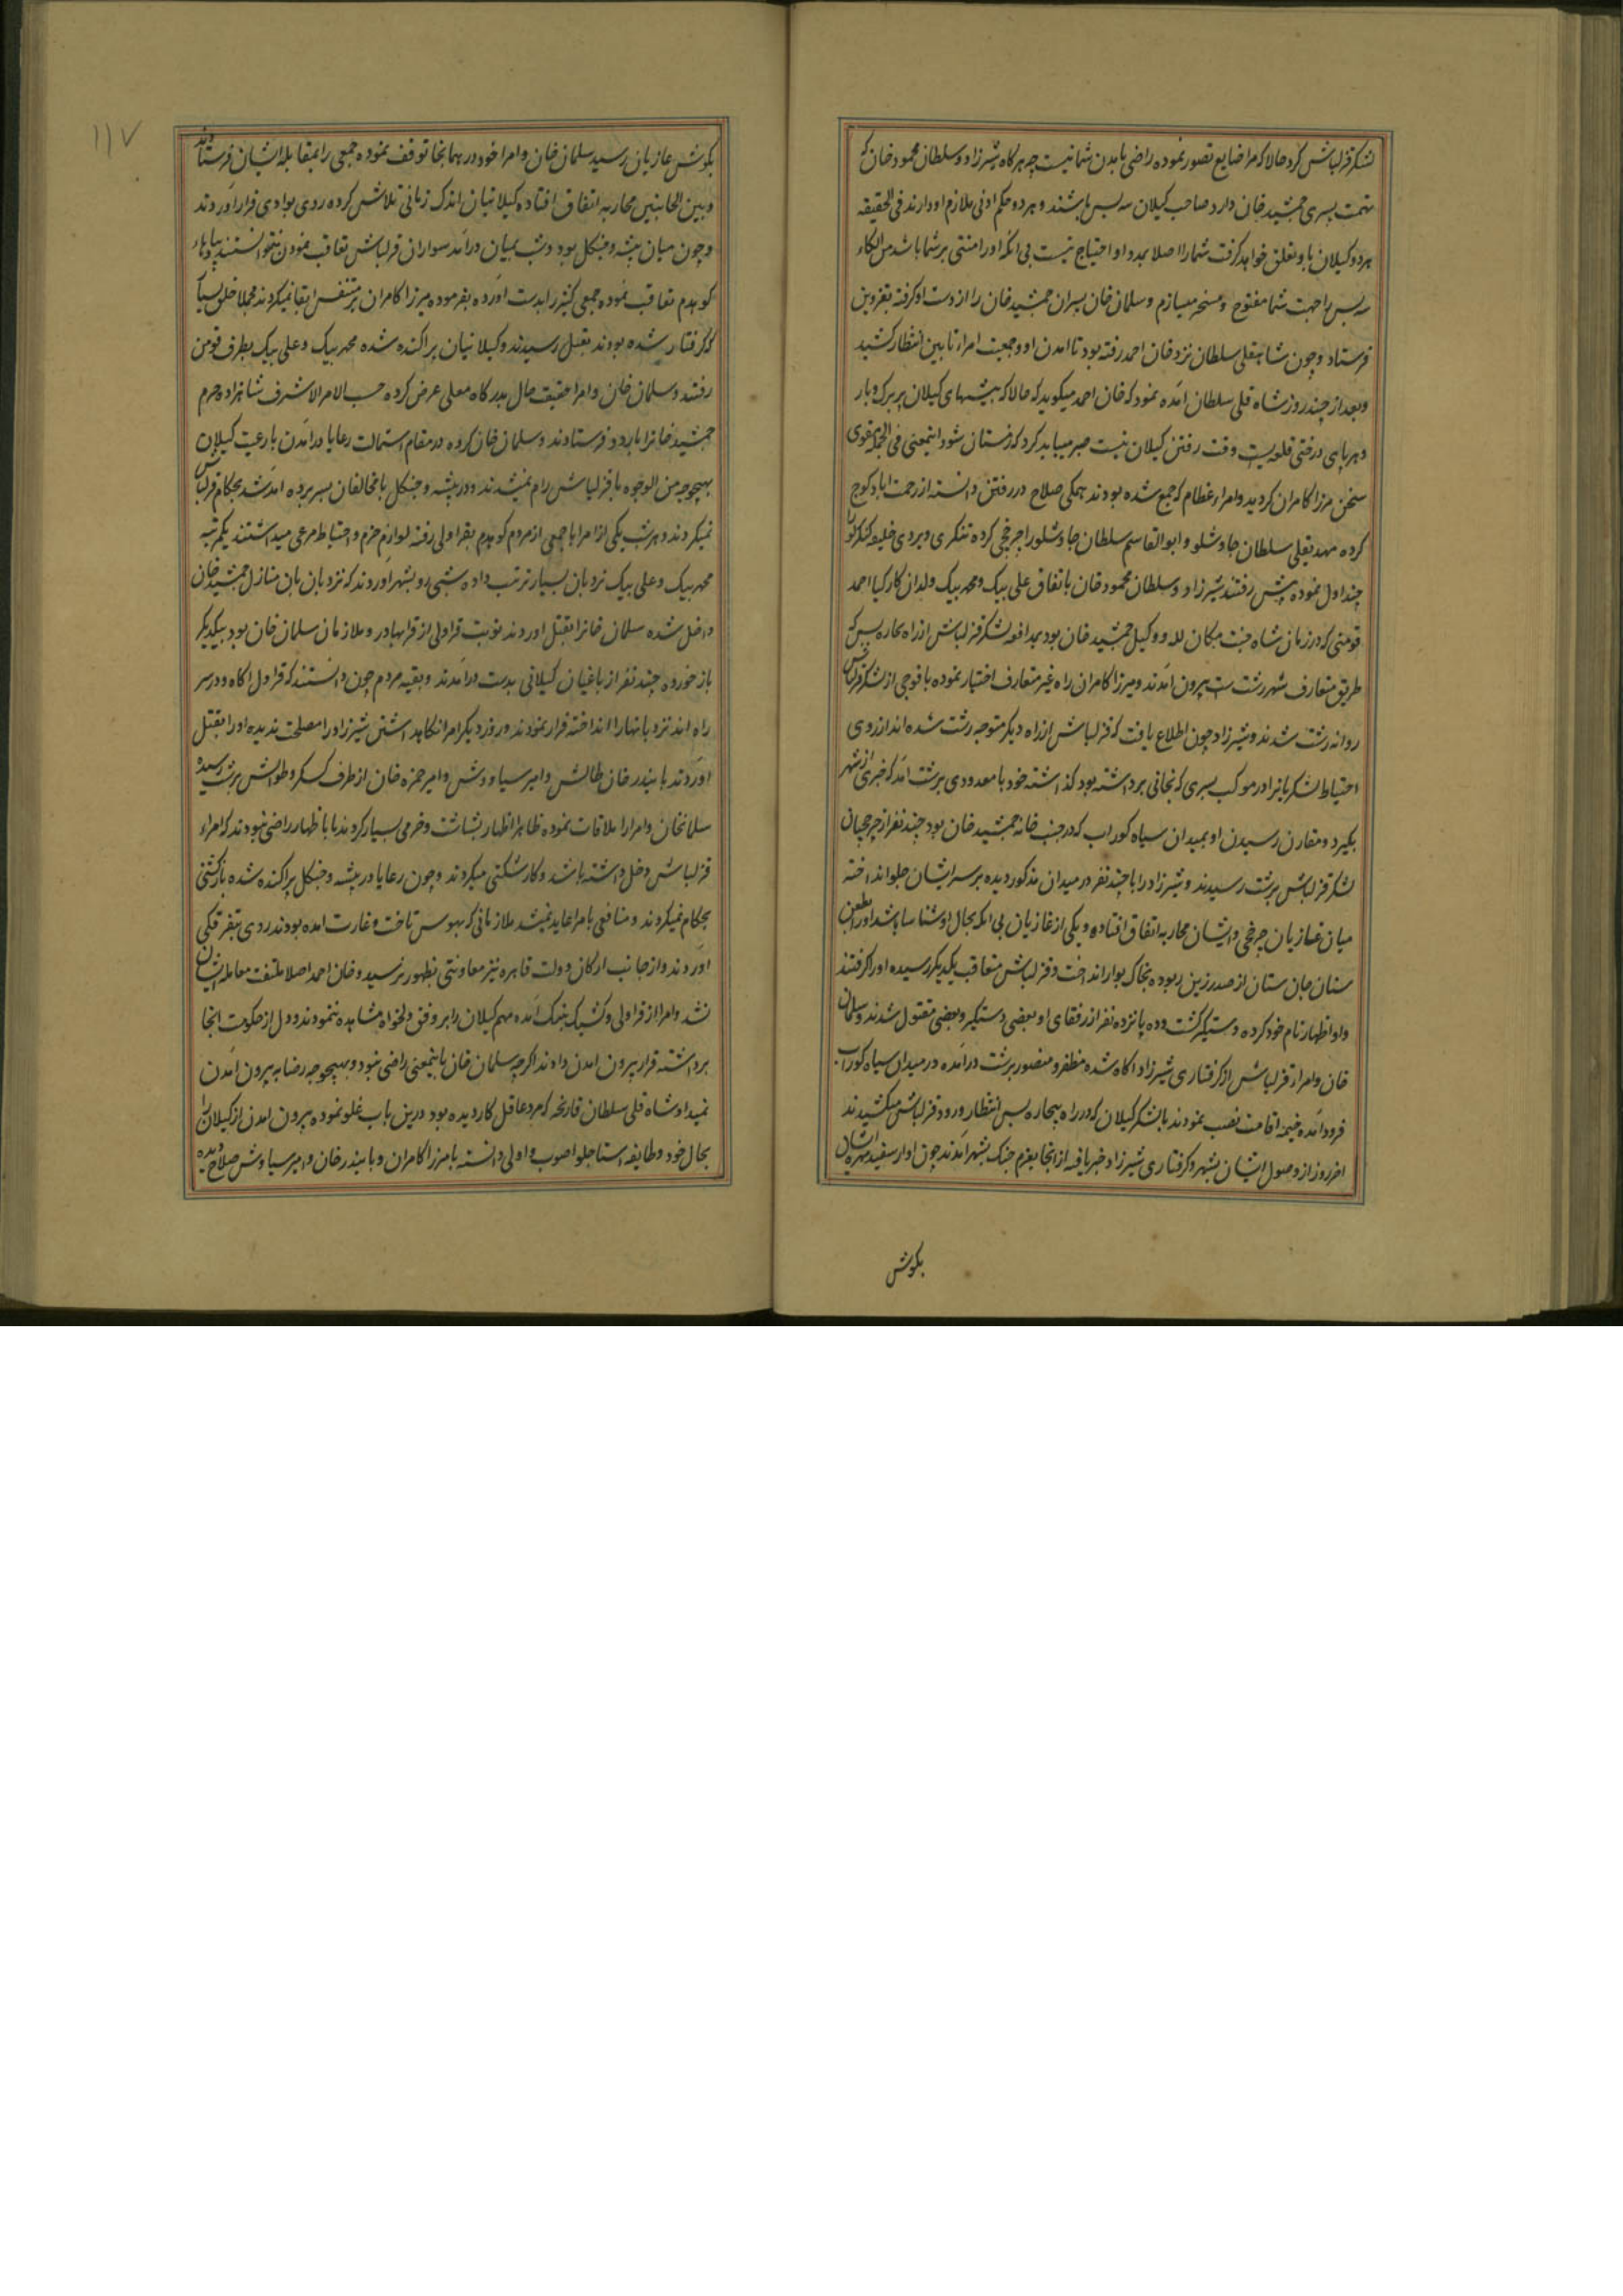 لشکر قزلباش کرد حالا که مرا ضایع تصور نموده راضی بامدن شما نیست چه هرگاه شیرزاد و سلطان محمود خان که
تهمت پسری جمشید خان دارد صاحب کیلان بیه پس باشند و هر دو حکم ادنی ملازم او دارند فی الحقیقه
هر دو کیلان باو تعلق خواهد کرفت شما را اصلا بمدد او احتیاج نیست بی انکه او را منتی بر شما باشد من الکاء
بیه پس را جهت شما مفتوح و مسخر میسازم و سلمان خان پسران جمشید خان را از دست او کرفته بقزوین
فرستاد و چون شاهقلی سلطان نزد خان احمد رفته بود تا امدن او و جمعیت امراء تابین انتظار کشید
و بعد از چند روز شاه قلی سلطان امده نمود که خان احمد میکوید که حالا که بیشهای کیلان پر برک و بار
و هر پای درختی قلعه‌یست وقت رفتن کیلان نیست صبر میباید کرد که زمستان شود اینمعنی فی الجمله مقوی
سخن مرزا کامران کردید و امراء عظام که جمع شده بودند همکی صلاح در رفتن دانسته از رحمت اباد کوچ
کرده مهدیقلی سلطان چاوشلو و ابوالقاسم سلطان چاوشلو را چرخچی کرده تنکری ویردی خلیفه کنکرلو را
چنداول نموده پیش رفتند شیرزاد و سلطان محمود خان باتفاق علی بیک و محمد بیک ولدان کارکیا احمد
قومنی که در زمان شاه جنت مکان لله و وکیل جمشید خان بود بمدافعه لشکر قزلباش از راه پس که
طریق متعارف شهر رشت است بیرون آمدند و میرزا کامران راه غیر متعارف اختیار نموده با فوجی از لشکر قزلباش
روانه رشت شدند و شیرزاد چون اطلاع یافت که قزلباش از راه دیکر متوجه رشت شده اند از روی
احتیاط لشکریانرا در موکب پسری که بخانی برداشته بود کذاشته خود با معدودی برشت آمد که خبری از شهر
بکیرد و مقارن رسیدن او بمیدان سیاه کوراب که در جنب خانه جمشید خان بود چند نفر از چرخچیان
لشکر قزلباش برشت رسیدند و شیرزاد را با چند نفر در میدان مذکور دیده بر سر ایشان جلو انداخته
میان غازیان چرخچی و ایشان محاربه اتفاق افتاده و یکی از غازیان بی انکه بحال او شناسا باشد او را بطعن
سنان جان ستان از صدر زین ربوده بخاک بوار انداخت و قزلباش متعاقب یکدیکر رسیده او را کرفتند
و او اظهار نام خود کرده دستکیر کشت و ده پانزده نفر از رفقای او بعضی دستکیر و بعضی مقتول شدند و سلمان
خان و امراء قزلباش از کرفتاری شیرزاد اکاه شده مظفر و منصور برشت درآمده در میدان سیاه کوراب
فرود آمده خیمه اقامت نصب نمودند بالشکر کیلان که در راه پس انتظار ورود قزلباش میکشیدند
اخر روز از وصول ایشان بشهر و کرفتاری شیرزاد خبر یافته از انجا بعزم جنک بشهر آمدند چون اواز سفید مهره ایشان
بکوش
۱۱۷
بکوش غازیان رسید سلمان خان و امرا خود در همانجا توقف نموده جمعی را بمقابله ایشان فرستادند
و بین الجانبین محاربه اتفاق افتاده کیلانیان اندک زمانی تلاش کرده روی بوادی فرار آوردند
و چون میان بیشه و جنکل بود و شب بمیان درآمد سواران قزلباش تعاقب نمودن نتوانستند پیادهاء
کوهدم تعاقب نموده جمعی کثیر را بدست آورده بفرموده میرزا کامران بر متنفس ابقا نمیکردند مجملا خلق بسیار
که کرفتار شده بودند بقتل رسیدند و کیلانیان پراکنده شده محمد بیک و علی بیک بطرف قومن
رفتند و سلمان خان و امرا حقیقت حال بدرکاه معلی عرض کرده حسب الامر الاشرف شاهزاده حرم
جمشید خانرا باردو فرستادند و سلمان خان کروه در مقام استمالت رعایا درآمدن با رعیت کیلان
بهیچ وجه من الوجوه با قزلباش رام نمیشدند و در بیشه و جنکل با مخالفان بسر برده امد شد بحکام قزلباش
نمیکردند و هر شب یکی از امرا با جمعی از مردم کوهدم بقراولی رفته لوازم حزم و احتیاط مرعی میداشتند یکمرتبه
محمد بیک و علی بیک نردبان بسیار ترتیب داده شبی رو بشهر آوردند که نردبان بان منازل جمشید خان
داخل شده سلمان خانرا بقتل اورند نوبت قراولی از قرا بهادر و ملازمان سلمان خان بود بیکدیکر
بازخورده چند نفر از باغیان کیلانی بدست درآمدند و بقیه مردم چون دانستند که قراول اکاه و در سر
راه اند نردبانها را انداخته فرار نمودند و روز دیکر امرا نکاهداشتن شیرزاد را مصلحت ندیده او را بقتل
اوردند بایندر خان طالش و امیر سیاووش و امیر حمزه خان از طرف کسکر و طوالش برشت رسیده
سلمانخان و امرا را ملاقات نموده ظاهرا اظهار بشاشت و خرمی بسیار کردند باباظهار راضی نبودند که امراء
قزلباش دخل داشته باشد و کارشکنی میکردند و چون رعایا در بیشه و جنکل پراکنده شده بازکشتی
بحکام نمیکردند و منافعی بامرا عاید نمیشد ملازمانی که بهوس تاخت و غارت امده بودند روی بتفرقکی
اوردند و از جانب ارکان دولت قاهره نیز معاونتی بظهور نرسید و خان احمد اصلا ملتفت معامله ایشان
نشد و امرا از قراولی و کشیک بتنک آمده مهم کیلان را بر وفق دلخواه مشاهده ننمودند و دل از حکومت انجا
برداشته قرار بیرون امدن دادند اکرچه سلمان خان باینمعنی راضی نبود و بهیچ وجه رضا به بیرون آمدن
نمیداد شاه قلی سلطان قارنجه که مرد عاقل کاردیده بود درین باب غلو نموده بیرون امدن از کیلان را
بحال خود و طایفه استاجلو اصوب و اولی دانسته با مرزا کامران و بایندر خان و امیر سیاوش صلاح دیده